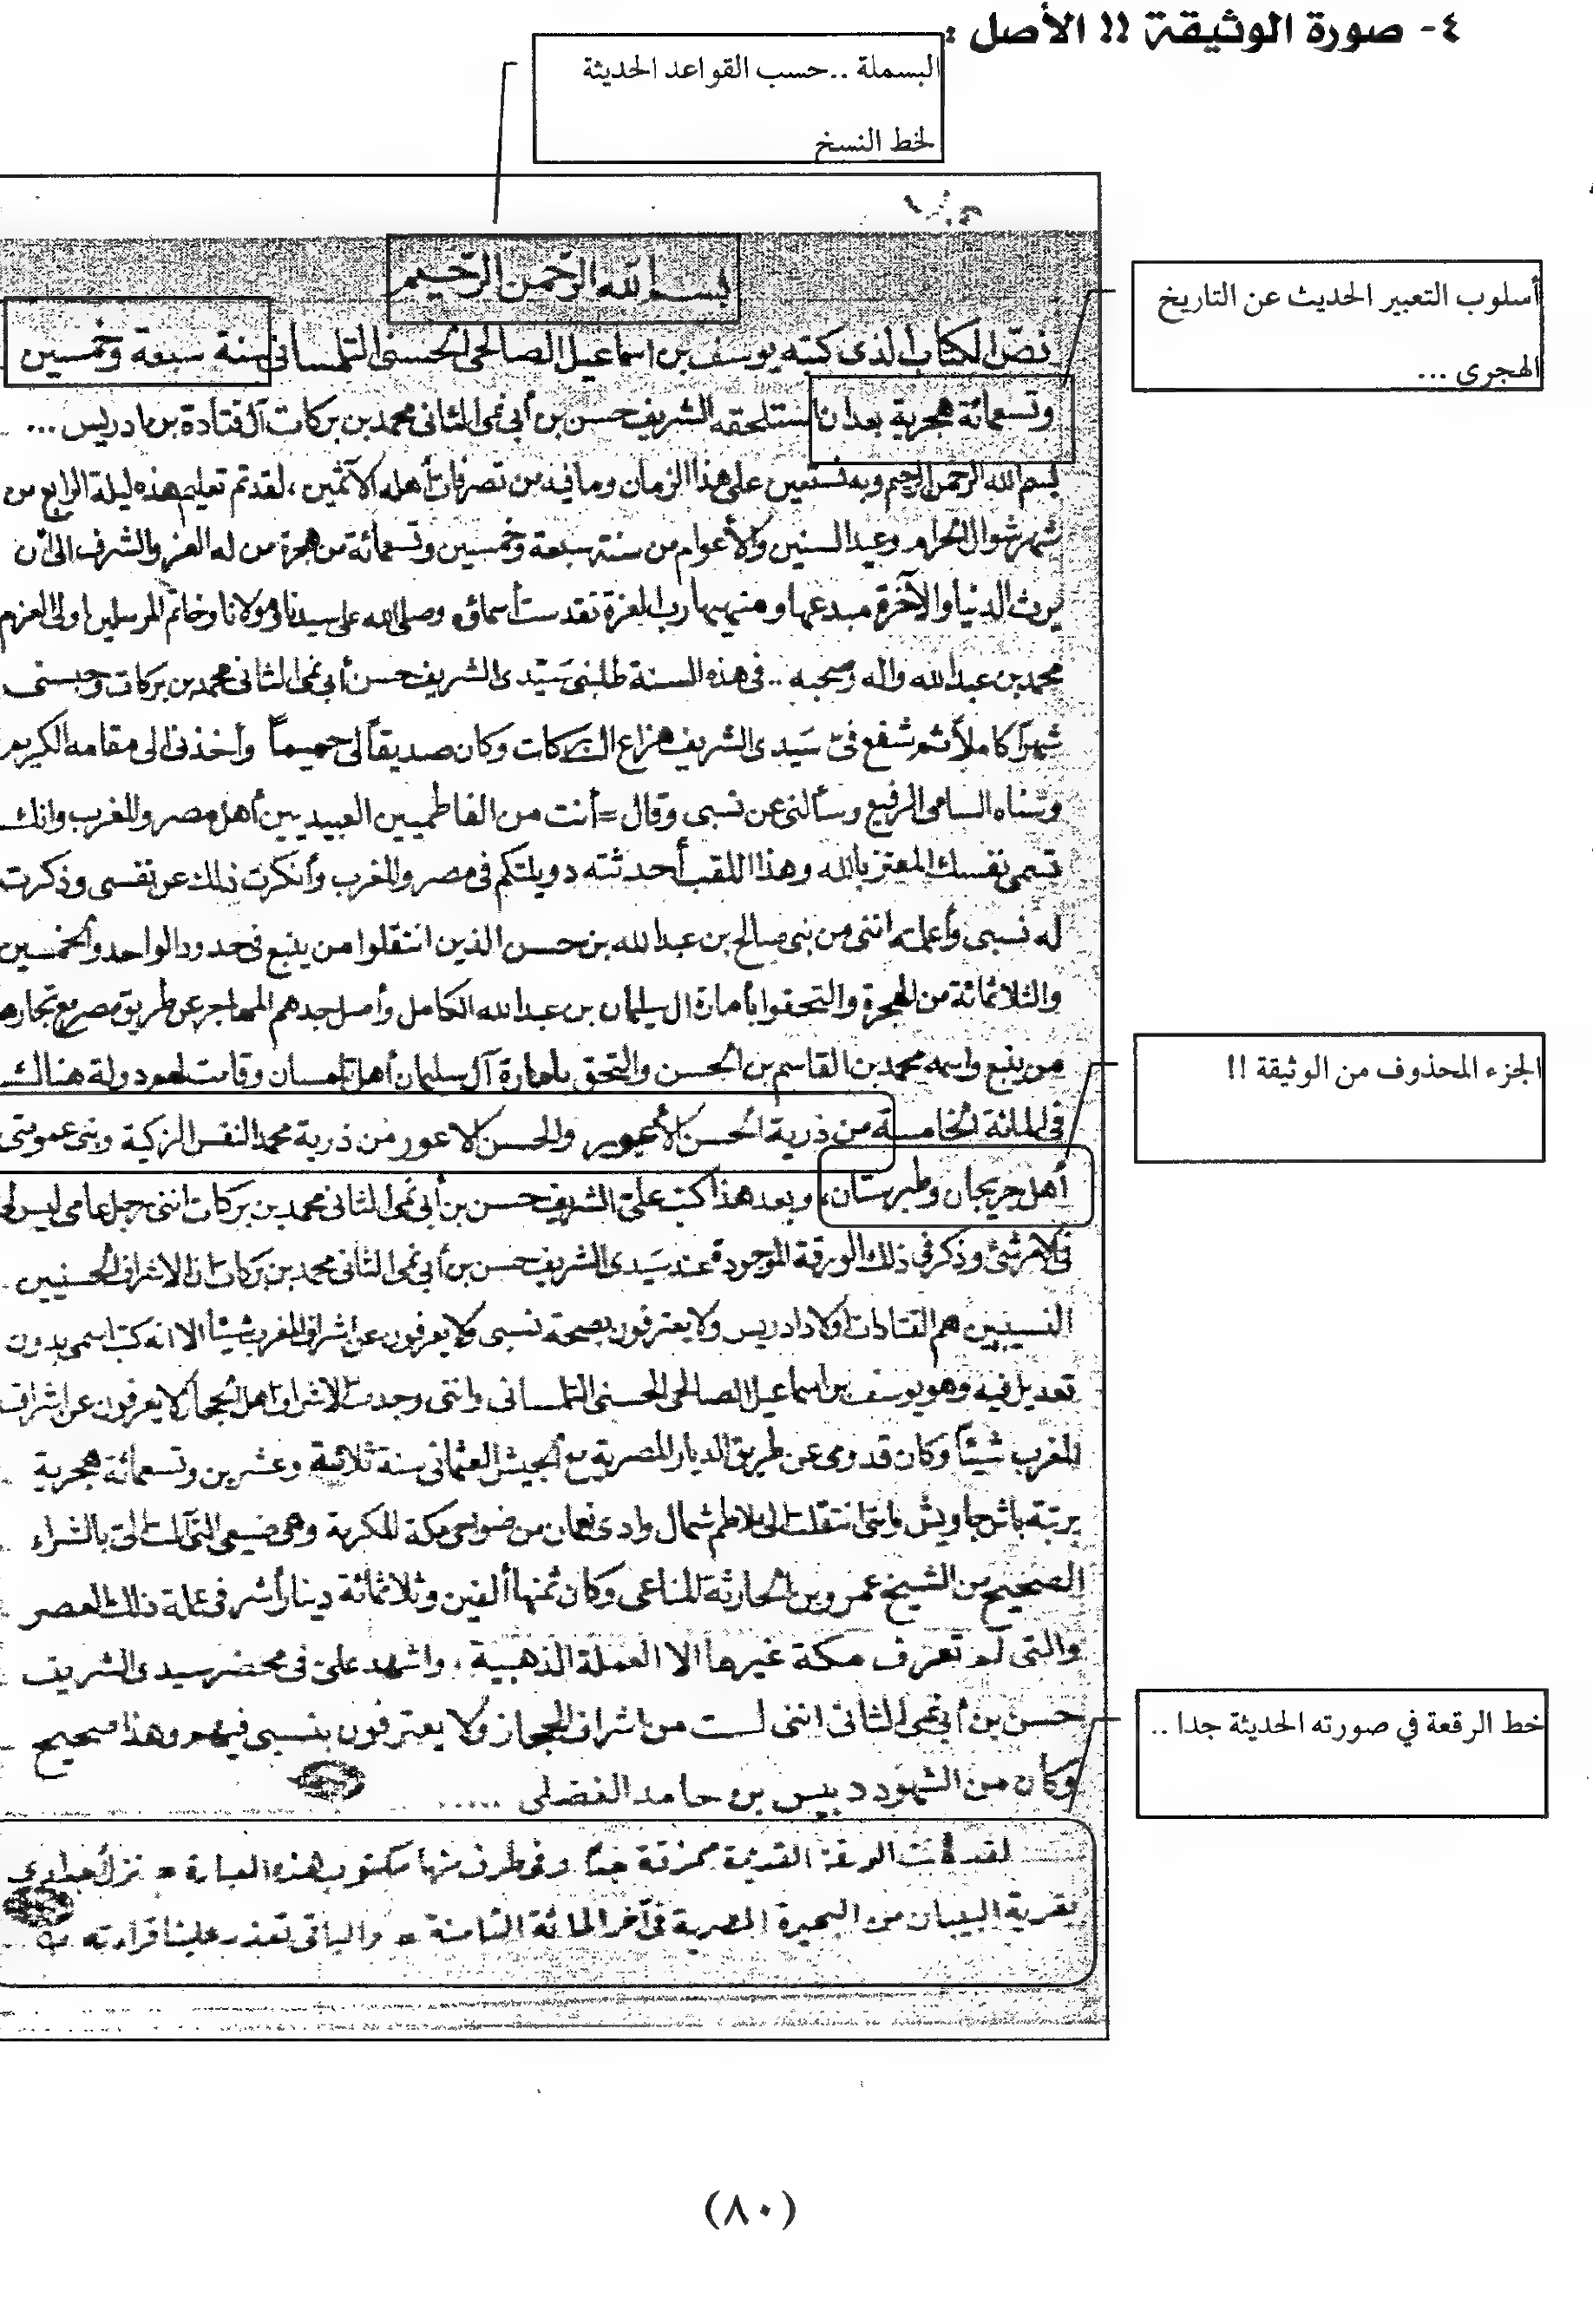 ٤- صورة الوثيقة !! الأصل :
البسملة ..حسب القواعد الحديثة
لخط النسخ
بسم الله الرحمن الرحيم
أسلوب التعبير الحديث عن التاريخ
الهجري ...
نصّ الكتاب الذى كتبه يوسف بن اسماعيل الصالحى الحسنى التلمسانى سنة سبعة وخمسين
وتسعمائة هجرية بعد ان استلحقه الشريف حسن بن أبى نمى الثانى محمد بن بركات آل قتادة بن ادريس ...
بسم الله الرحمن الرحيم وبه نستعين على هذا الزمان وما فيه من تصرفات أهله الآثمين ، لقد تم تعليم هذه ليلة الرابع من
شهر شوال الحرام وعيد السنين والأعوام من سنة سبعة وخمسين وتسعمائة من هجرة من له العز والشرف الى ان
يرث الدنيا والآخرة مبدعها ومنهيها رب العزة تقدست أسماؤه وصلى الله على سيدنا ومولانا وخاتم المرسلين اولى العزم
محمد بن عبد الله واله وصحبه .. فى هذه السنة طلبنى سَيّدى الشريف حسن أبى نمى الثانى محمد بن بركات وحبسنى
شهراً كاملاً ثم شفع فىّ سَيدى الشريف هزاع البركات وكان صديقاً لى حميماً وأخذنى الى مقامه الكريم
وسناه السامى الرفيع وسألنى عن نسبى وقال = أنت من الفاطميين العبيديين أهل مصر والمغرب وانك
تسمى نفسك المعتز بالله وهذا اللقب أحدثته دويلتكم فى مصر والمغرب وأنكرت ذلك عن نفسى وذكرت
له نسبى وأعلمته اننى من بنى صالح بن عبد الله بن حسن الذين انتقلوا من ينبع فى حدود الواحد والخمسين
والثلاثمائة من الهجرة والتحقوا بأمارة ال سليمان بن عبد الله الكامل وأصل جدهم المهاجر عن طريق مصر مع تجارها
من ينبع واسمه محمد بن القاسم بن الحسن والتحق بامارة آل سليمان أهل تلمسان وقامت لهم دولة هناك
الجزء المحذوف من الوثيقة !!
فى المائة الخامسة من ذرية الحسن الأعور والحسن الاعور من ذرية محمد النفس الزكية وبنى عمومتى
أهل جريجان وطبرستان، وبعد هذا كتب علىّ الشريف حسن بن أبى نمى الثانى محمد بن بركات اننى رجل عامى ليس لى
فى الأمر شئ وذكر فى ذلك الورقة الموجودة عند سَيدى الشريف حسن بن أبى نمى الثانى محمد بن بركات ان الاشراف الحسنيين
النسبيين هم القتادات اولاد ادريس ولا يعترفون بصحة نسبى ولا يعرفون عن اشراف المغرب شيئا الا انه كتب اسمى بدون
تعديل فيه وهو يوسف بن اسماعيل الصالحى الحسنى التلمسانى واننى وجدت الاشراف اهل الحجاز لا يعرفون عن اشراف
المغرب شيئاً وكان قدومى عن طريق الديار المصرية مع الجيش العثمانى سنة ثلاثة وعشرين وتسعمائة هجرية
برتبة باش جاويش واننى انتقلت الى بلاطم شمال وادى نعمان من ضواحى مكة المكرمة وهى ضيعتى التى آلت الىّ بالشراء
الصحيح من الشيخ عمرو بن الحارثة المناعى وكان ثمنها ألفين وثلاثمائة دينار أشرفى عملة ذلك العصر
والتى لم تعرف مكة غيرها الا العملة الذهبية . واشهد علىّ فى محضر سيدى الشريف
خط الرقعة في صورته الحديثة جدا ..
حسن بن أبى نمى الثانى اننى لست من اشراف الحجاز ولا يعترفون بنسبى فيهم وهذا صحيح
وكان من الشهود دبيس بن حامد الفضلى .....
لقد كانت الورقة القديمة ممزقة جداً وفى طرف منها مكتوب هذه العبارة = نزل أجدادى
بقرية البيبان من البحيرة المصرية فى آخر المائة الثامنة = والباقى تعذر علينا قراءته
(٨٠)